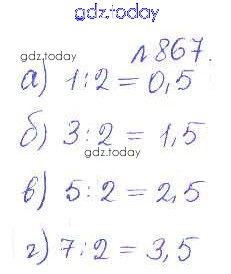 gdz.today
gdz.today
№ 867.
а) 1:2 = 0,5
б) 3:2 = 1,5
gdz.today
в) 5:2 = 2,5
г) 7:2 = 3,5
gdz.today